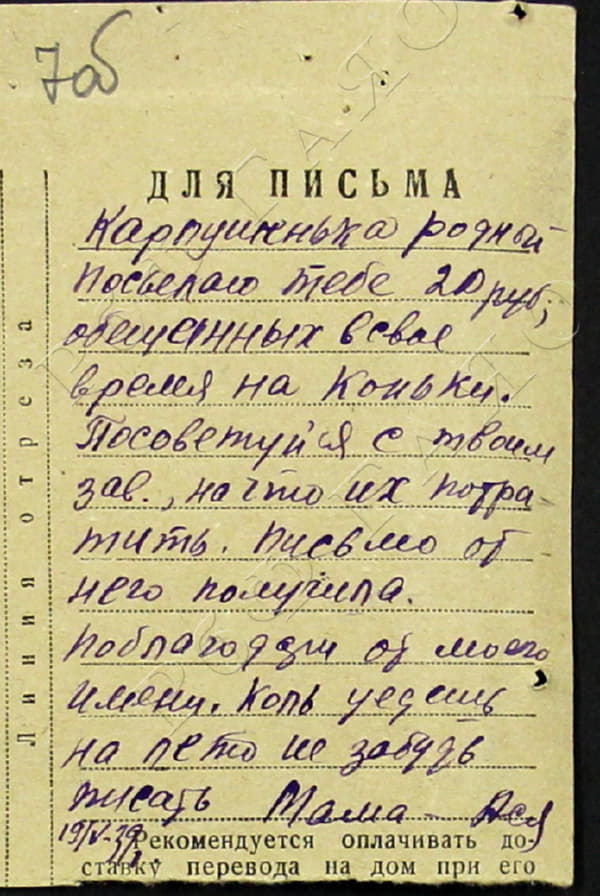 7об
ДЛЯ ПИСЬМА
Карпушенька родный
Посылаю тебе 20 руб.,
обещанных в свое
время на коньки.
Посоветуйся с твоим
зав., на что их потра-
тить. Письмо от
него получила.
Поблагодари от моего
имени. Коль уедешь
на лето не забудь
писать Мама – Ася
19/V-39
Рекомендуется оплачивать до-
ставку перевода на дом при его
Линия отреза